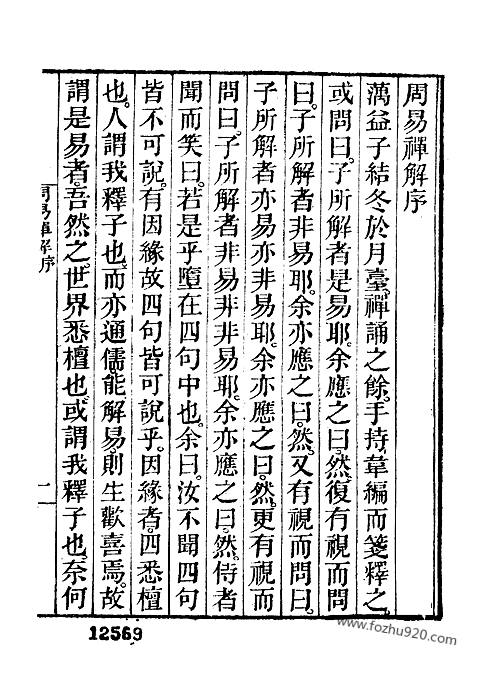 周易禪解序
蕅益子結冬於月臺。禪誦之餘。手持韋編而箋釋之。
或問曰。子所解者是易耶。余應之曰。然。復有視而問
曰。子所解者非易耶。余亦應之曰。然。又有視而問曰。
子所解者亦易亦非易耶。余亦應之曰。然。更有視而
問曰。子所解者非易非非易耶。余亦應之曰。然。侍者
聞而笑曰。若是乎墮在四句中也。余曰。汝不聞四句
皆不可說。有因緣故四句皆可說乎。因緣者。四悉檀
也。人謂我釋子也。而亦通儒。能解易。則生歡喜焉。故
謂是易者。吾然之。世界悉檀也。或謂我釋子也。奈何
周易禪解序
二
12569
www.fozhu920.com